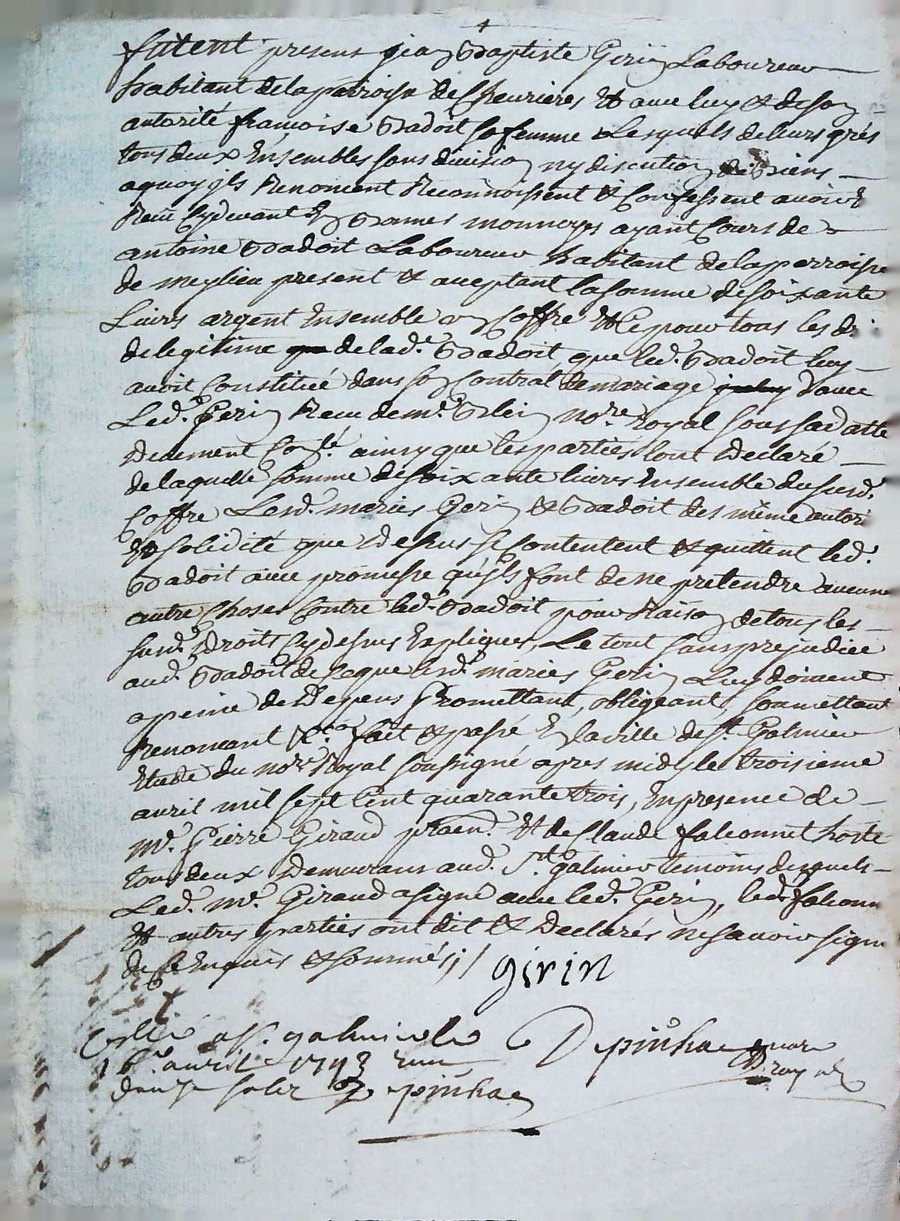 furent presens jean Baptiste Gerin Laboureur
habitant de la paroisse de Chevrieres Et avec luy & de son
autorité francoise Badoit sa femme Lesquels de leurs grés
tous deux Ensembles sans division ny discution de biens
aquoy ils Renoncent Reconnoissent & Confessent avoir
Reçu Cydevant En Bonnes monnoyes ayant Cours de
antoine Badoit Laboureur habitant de la perroisse
de meylieu present & aceptant la somme de soixante
Livres argent Ensemble un Coffre Et Ce pour tous les dr
de legitime de lad.e Badoit que led. Badoit luy
avoit Constituée dans son Contrat de mariage d'avec
Led. Gerin Reçu de m.e notre Royal sous sa datte
Duement Con.lé ainsy que les parties l'ont Declaré
de laquelle somme de soixante livres Ensemble du surd.
Coffre Lesd. mariés Gerin & Badoit des même autori
Et solidité que Dessus se Contentent & quittent led.
Badoit avec promesse qu'ils font de ne pretendre aucune
autre Chose Contre led. Badoit pour Raison de tous les
susd. Droits Cy dessus Expliques, Le tout sans prejudice
aud. Badoit de Ce que lesd. mariés Gerin Luy doivent
a peine de Depens Promettant, obligeant, soumettant
Renoncant &.a fait & passé En la ville de S.t Galmier
Etude du no.re Royal soussigné apres midy le troisieme
avril mil sept Cent quarante trois, En presence de
m.e Pierre Giraud praen. Et de Claude falconnet hoste
tous deux Demeurans aud. S.t galmier temoins desquels
Led. m.e Giraud a signé avec led. Gerin, led. falconn
Et autres parties ont dit & Declarés ne savoir signe
de Ce Enquis & sommés //
girin
Collé a St. galmier le Depinhac
16.e avril 1743 royal
douze solz Depinhac